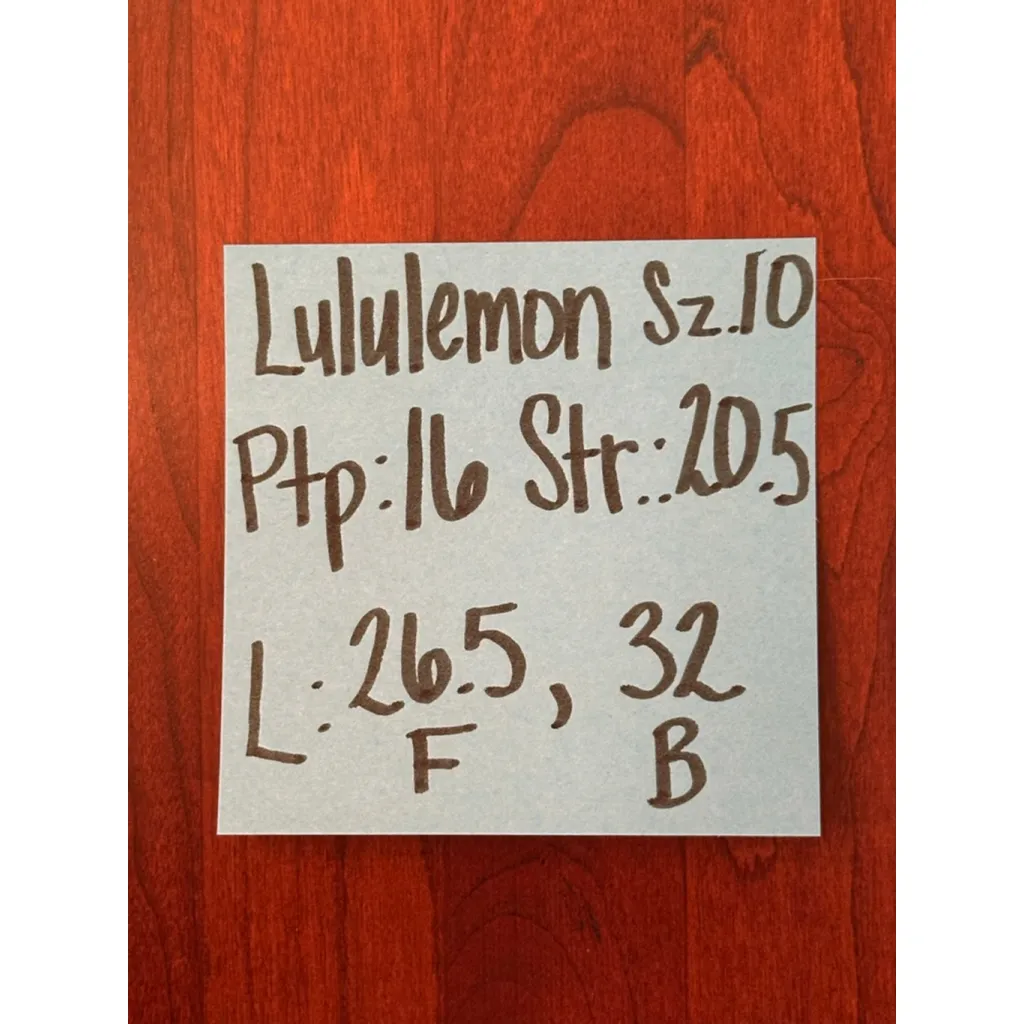 Lululemon Sz.10
Ptp:16 Str:.20.5
L: 26.5, 32
F B